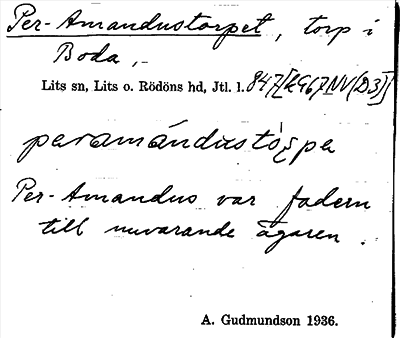 Per-Amandustorpet, torp i
Boda,
Lits sn, Lits o. Rödöns hd, Jtl. l. 847
peramándustȯrpe
Per-Amandus var fadern
till nuvarande ägaren.
A. Gudmundson 1936.